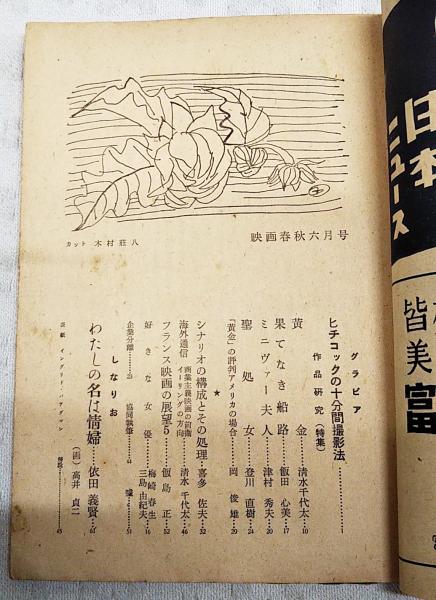 カット 木村荘八
映画春秋六月号
グラビア
ヒチコックの十分間撮影法……1
作品研究（特集）
黄金……清水千代太…10
果てなき船路……飯田心美…17
ミニヴァー夫人……津村秀夫…20
聖処女……登川直樹…24
「黄金」の評判アメリカの場合……岡俊雄…29
★
シナリオの構成とその処理……喜多佐夫…32
海外通信 商業主義映画の前衛 イーリングの方向……清水千代太…46
フランス映画の展望5……飯島正…52
好きな女優……梅崎春生 三島由紀夫…16
企業分離…23
協同執筆…44
しなりお
わたしの名は情婦……依田義賢…61
（画）高井貞二
表紙 イングリッド・バアグマン
解説…45
日本ニュース
皆美
富